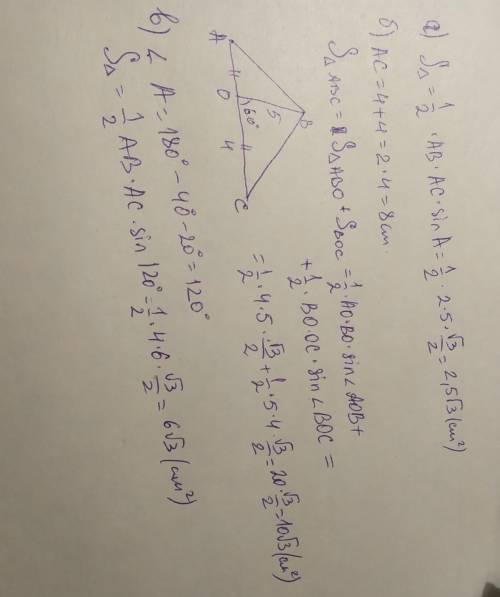 а) S△ = 1/2 · AB · AC · sin A = 1/2 · 2 · 5 · √3/2 = 2,5√3 (см²)
б) AC = 4 + 4 = 2 · 4 = 8 см.
S△ABC = S△ABO + SBOC = 1/2 · AO · BO · sin∠AOB +
+ 1/2 · BO · OC · sin∠BOC =
= 1/2 · 4 · 5 · √3/2 + 1/2 · 5 · 4 · √3/2 = 20 · √3/2 = 10√3 (см²)
A
4
O
60°
5
B
4
C
в) ∠ A = 180° - 40° - 20° = 120°
S△ = 1/2 AB · AC · sin 120° = 1/2 · 4 · 6 · √3/2 = 6√3 (см²)